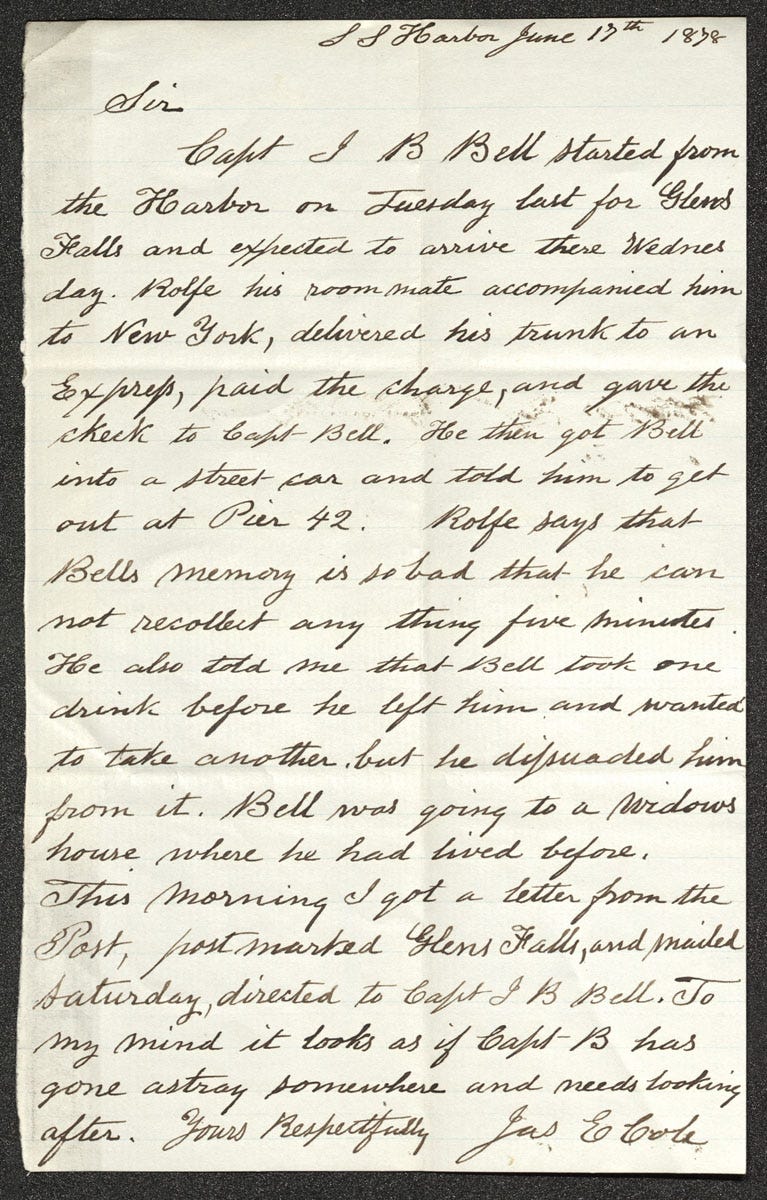 S S Harbor June 17th 1878
Sir
Capt J B Bell started from
the Harbor on Tuesday last for Glens
Falls and expected to arrive there Wednes
day. Rolfe his room mate accompanied him
to New York, delivered his trunk to an
Express, paid the charge, and gave the
check to Capt Bell. He then got Bell
into a street car and told him to get
out at Pier 42. Rolfe says that
Bells memory is so bad that he can
not recollect any thing five minutes.
He also told me that Bell took one
drink before he left him and wanted
to take another, but he dissuaded him
from it. Bell was going to a Widows
house where he had lived before.
This Morning I got a letter from the
Post, post marked Glens Falls, and mailed
Saturday, directed to Capt J B Bell. To
my mind it looks as if Capt B has
gone astray somewhere and needs looking
after. Yours Respectfully Jas E Cole